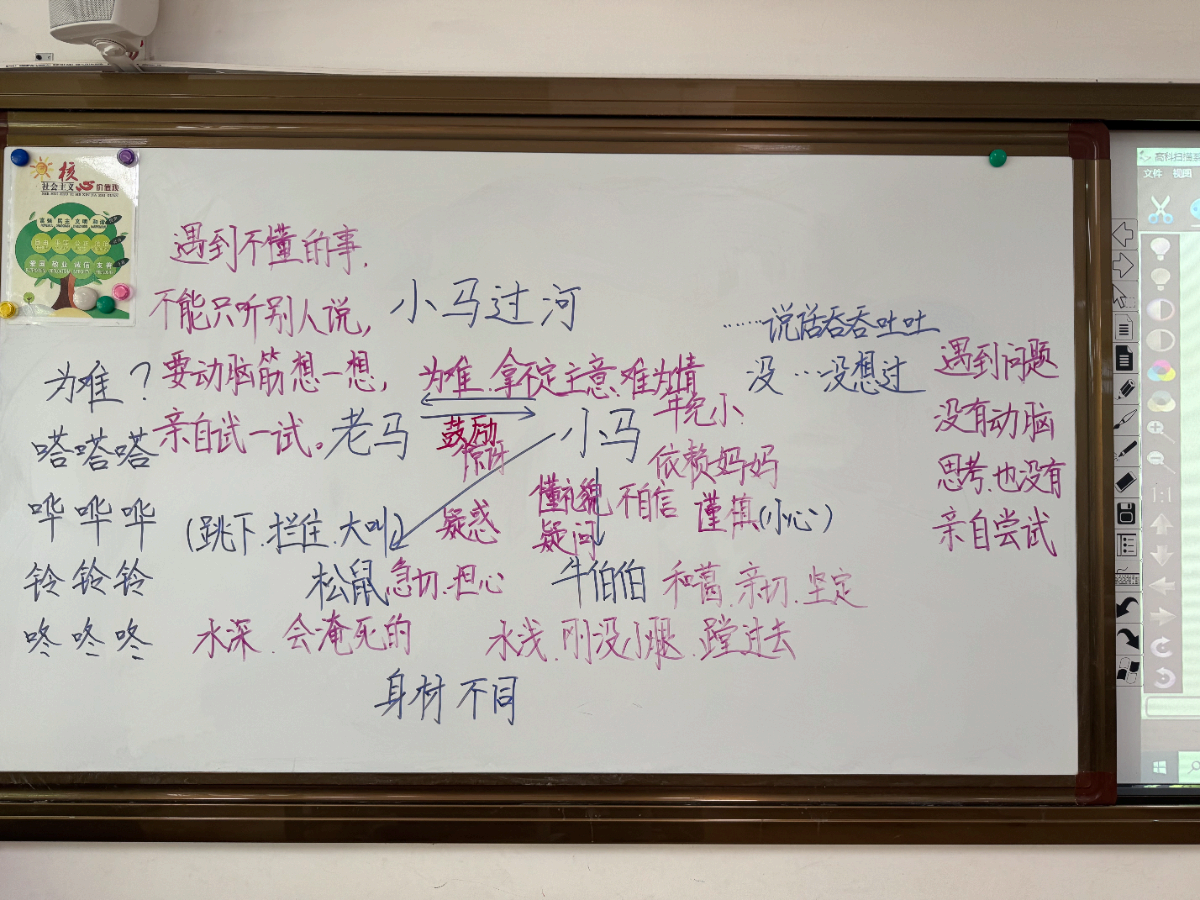 核
社会主义 心 价值观
富强 民主 文明 和谐
遇到不懂的事,
不能只听别人说,
要动脑筋想一想,
亲自试一试。
小马过河
……说话吞吞吐吐
没…没想过
为难?
嗒嗒嗒
哗哗哗
铃铃铃
咚咚咚
为难.拿不定主意.难为情
老马
鼓励
惊讶
小马
年纪小.
依赖妈妈
不自信 谨慎(小心)
懂礼貌
疑问
(跳下.拦住.大叫)
疑惑
松鼠 急切.担心
牛伯伯 和蔼.亲切.坚定
水深.会淹死的
水浅.刚没小腿.蹚过去
身材不同
遇到问题
没有动脑
思考.也没有
亲自尝试
文件 视图
1:1